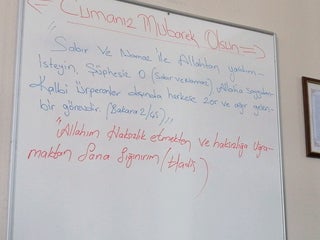 Cumanız Mübarek Olsun
"Sabır ve Namaz ile Allahtan yardım
isteyin, Şüphesiz O (Sabır ve Namaz) Allaha saygıdan
Kalbi ürperenler dışında herkese zor ve ağır gelen
bir görevdir. (Bakara 2/45)"
"Allahım Haksızlık etmekten ve haksızlığa uğra-
maktan Sana Sığınırım (Hadis)